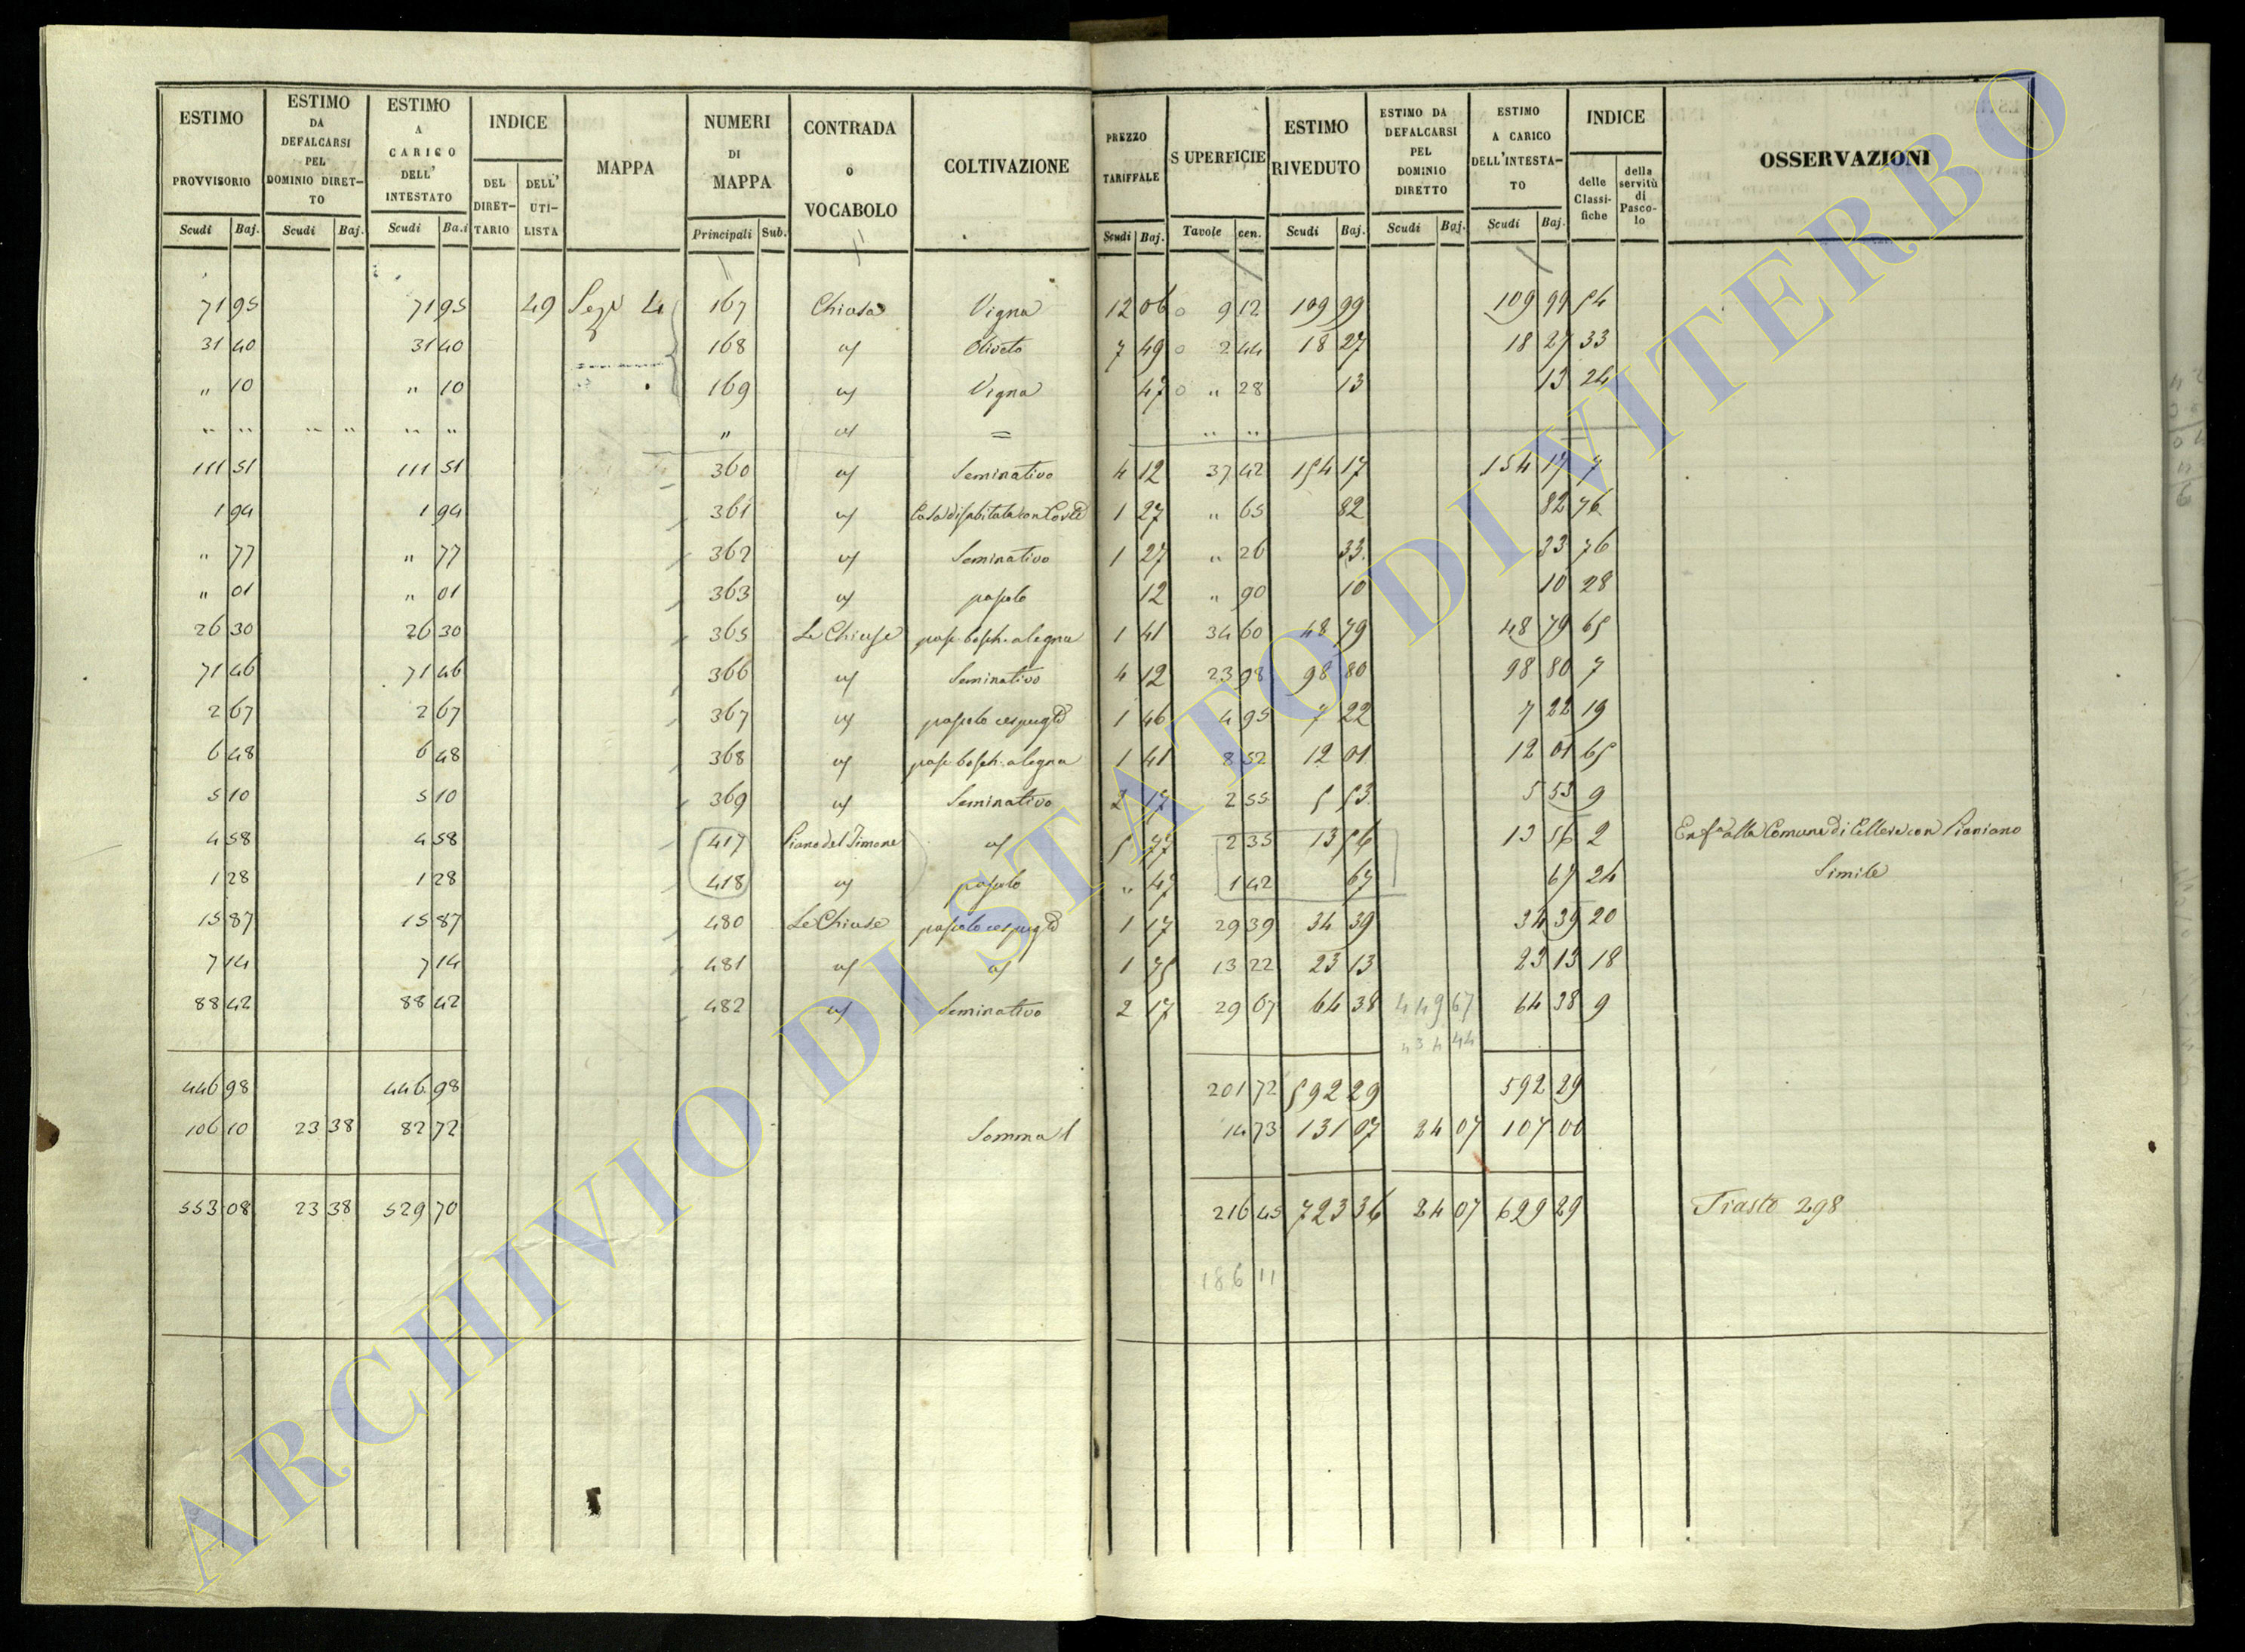 ESTIMO PROVVISORIO | ESTIMO DA DEFALCARSI PEL DOMINIO DIRETTO | ESTIMO A CARICO DELL' INTESTATO | INDICE | MAPPA | NUMERI DI MAPPA | CONTRADA O VOCABOLO | COLTIVAZIONE | PREZZO TARIFFALE | SUPERFICIE | ESTIMO RIVEDUTO | ESTIMO DA DEFALCARSI PEL DOMINIO DIRETTO | ESTIMO A CARICO DELL'INTESTATO | INDICE | OSSERVAZIONI
DEL DIRETTARIO | DELL' UTILISTA | delle Classifiche | della servitù di Pascolo
Scudi | Baj. | Scudi | Baj. | Scudi | Ba.i | Principali | Sub. | Scudi | Baj. | Tavole | cen. | Scudi | Baj. | Scudi | Baj. | Scudi | Baj.
71 95 | 71 95 | 49 | Sez. 4 | 167 | Chiusa | Vigna | 12 06 | 9 12 | 109 99 | 109 99 | 54
31 40 | 31 40 | 168 | " | Oliveto | 7 49 | 2 44 | 18 27 | 18 27 | 33
" 10 | " 10 | 169 | " | Vigna | 47 | " 28 | 13 | 13 | 24
" " | " " | " " | " | " | = | " "
111 51 | 111 51 | 360 | " | Seminativo | 4 12 | 37 42 | 154 17 | 154 17 | 7
1 94 | 1 94 | 361 | " | Casa disabitata con Corte | 1 27 | " 65 | 82 | 82 | 76
" 77 | " 77 | 362 | " | Seminativo | 1 27 | " 26 | 33 | 33 | 76
" 01 | " 01 | 363 | " | pascolo | 12 | " 90 | 10 | 10 | 28
26 30 | 26 30 | 365 | Le Chiuse | pasc. bosch. a legna | 1 41 | 34 60 | 48 79 | 48 79 | 65
71 46 | 71 46 | 366 | " | Seminativo | 4 12 | 23 98 | 98 80 | 98 80 | 7
2 67 | 2 67 | 367 | " | pascolo cespuglto | 1 46 | 4 95 | 7 22 | 7 22 | 19
6 48 | 6 48 | 368 | " | pasc. bosch. a legna | 1 41 | 8 52 | 12 01 | 12 01 | 65
5 10 | 5 10 | 369 | " | Seminativo | 2 17 | 2 55 | 5 53 | 5 53 | 9
4 58 | 4 58 | 417 | Piano del Timone | " | 5 77 | 2 35 | 13 56 | 13 56 | 2 | Enf.a alla Comune di Cellere con Pianiano
1 28 | 1 28 | 418 | " | pascolo | " 47 | 1 42 | 67 | 67 | 24 | Simile
15 87 | 15 87 | 480 | Le Chiuse | pascolo cespuglto | 1 17 | 29 39 | 34 39 | 34 39 | 20
7 14 | 7 14 | 481 | " | " | 1 75 | 13 22 | 23 13 | 23 13 | 18
88 42 | 88 42 | 482 | " | Seminativo | 2 17 | 29 67 | 64 38 | 449 67 | 64 38 | 9
446 98 | 446 98 | 201 72 | 592 29 | 592 29
106 10 | 23 38 | 82 72 | Somma | 14 73 | 131 07 | 24 07 | 107 00
553 08 | 23 38 | 529 70 | 216 45 | 723 36 | 24 07 | 699 29 | Trasto 298
186 11
ARCHIVIO DI STATO DI VITERBO